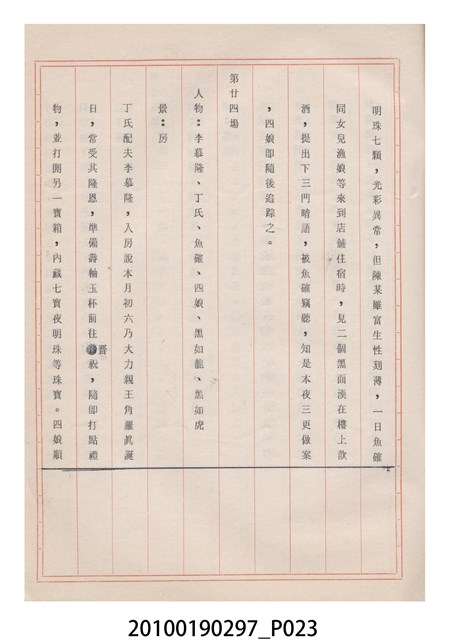 明珠七顆,光彩異常,但陳某雖富生性刻薄,一日魚確
同女兒漁娘等來到店舖住宿時,見二個黑面漢在樓上飲
酒,提出下三門暗語,被魚確竊聽,知是本夜三更做案
,四娘即隨後追踪之。
第廿四場
人物:李慕隆、丁氏、魚確、四娘、黑如龍、黑如虎
景:房
丁氏配夫李慕隆,入房說本月初六乃大力親王角羅眞誕
日,常受其隆恩,準備壽軸玉杯前往晋祝,隨即打點禮
物,並打開另一寶箱,內藏七寶夜明珠等珠寶。四娘順
20100190297_P023